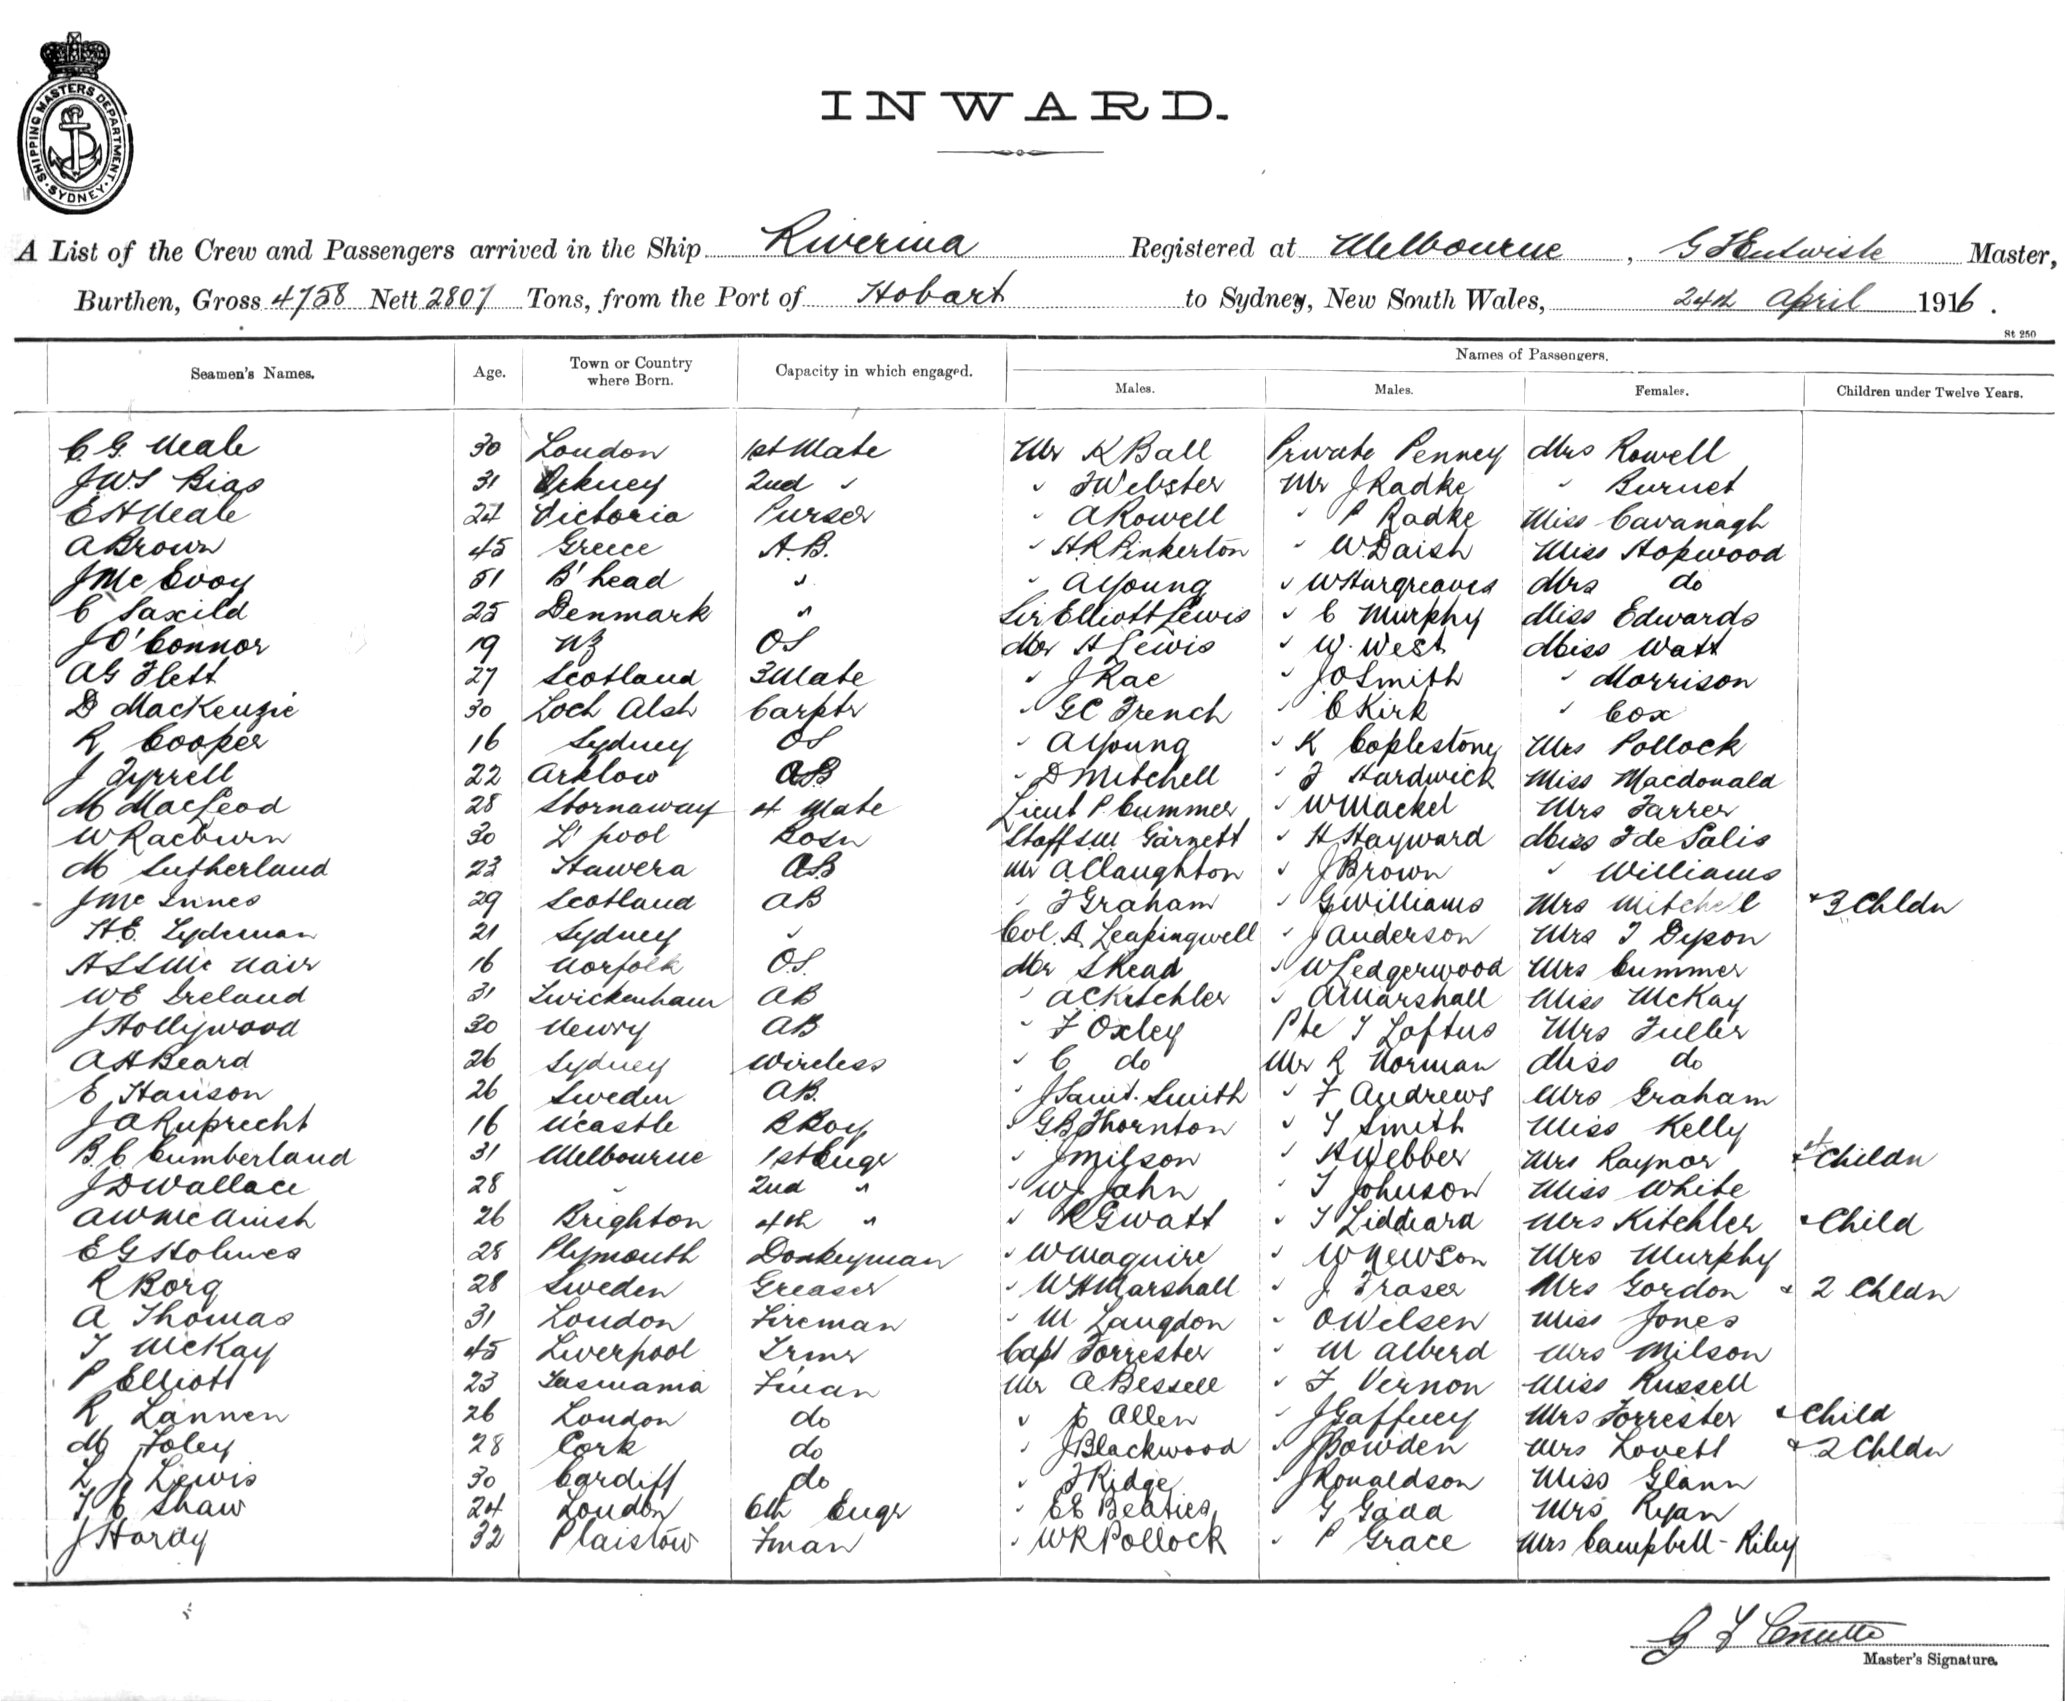 SHIPPING MASTERS DEPARTMENT
SYDNEY
INWARD.
A List of the Crew and Passengers arrived in the Ship Riverina Registered at Melbourne, G F Entwisle Master,
Burthen, Gross 4758 Nett 2807 Tons, from the Port of Hobart to Sydney, New South Wales, 24th April 1916.
St 250
Seamen's Names. Age. Town or Country where Born. Capacity in which engaged. Names of Passengers.
Males. Males. Females. Children under Twelve Years.
C. G. Neale 30 London 1st Mate Mr K Ball Private Penney Mrs Rowell
J W S Bias 31 Orkney 2nd " " F Webster Mr J Radke " Burnet
E H Neale 24 Victoria Purser " A Rowell " P Radke Miss Cavanagh
A Brown 45 Greece A.B. " H R Pinkerton " W Daish Miss Hopwood
J McEvoy 51 B'head " " A Young " W Hargreaves Mrs do
C Saxild 25 Denmark " Sir Elliott Lewis " C Murphy Miss Edwards
J O'Connor 19 NZ OS Mr H Lewis " W. West Miss Watt
A G Flett 27 Scotland 3 Mate " J Rae " J O Smith " Morrison
D MacKenzie 30 Loch Alsh Carptr " G C French " C Kirk " Cox
R Cooper 16 Sydney OS " A Young " K Coplestone Mrs Pollock
J Tyrrell 22 Arklow AB " D Mitchell " F Hardwick Miss Macdonald
M MacLeod 28 Stornaway 4 Mate Lieut P Cummer " W Mackel Mrs Farrer
W Raeburn 30 L'pool Bosn Staff SM Garnett " H Hayward Miss F de Salis
M Sutherland 23 Hawera AB Mr A Claughton " J Brown " Williams
J McInnes 29 Scotland AB " F Graham " G Williams Mrs Mitchell + 3 Chldn
H. E. Lydeman 21 Sydney " Col. A Leapingwell " J Anderson Mrs T Dyson
A S S McNair 16 Norfolk O.S. Mr S Read " W Ledgerwood Mrs Cummer
W E Ireland 31 Twickenham AB " A C Kitchler " A Marshall Miss McKay
J Hollywood 30 Newry AB " F Oxley Pte T Loftus Mrs Fuller
A H Beard 26 Sydney Wireless " C do Mr R Norman Miss do
E Hanson 26 Sweden AB. " J Saint-Smith " F Andrews Mrs Graham
J A Ruprecht 16 N'castle B Boy " G B Thornton " T Smith Miss Kelly
B. C. Cumberland 31 Melbourne 1st Engr " J Milson " H Webber Mrs Raynor + 4 Childn
J D Wallace 28 " 2nd " " W J Jahn " T Johnson Miss White
A W McAinsh 26 Brighton 4th " " R G Watt " T Liddeard Mrs Kitchler + Child
E G Holmes 28 Plymouth Donkeyman " W Maguire " W Newson Mrs Murphy
R Borg 28 Sweden Greaser " W H Marshall " J Fraser Mrs Gordon + 2 Chldn
A Thomas 31 London Fireman " M Langdon " O Wilsen Miss Jones
T McKay 45 Liverpool Trmr Capt Forrester " M Alberd Mrs Milson
P Elliott 23 Tasmania Fman Mr A Bessell " F Vernon Miss Russell
R Lannen 26 London do " C Allen " J Gaffney Mrs Forrester + Child
M Foley 28 Cork do " J Blackwood " J Bowden Mrs Lovett + 2 Chldn
L J Lewis 30 Cardiff do " F Ridge " J Ronaldson Miss Glann
T C Shaw 24 London 6th Engr " E E Beaties " G Gadd Mrs Ryan
J Hardy 32 Plaistow Fman " W R Pollock " P Grace Mrs Campbell-Riley
Master's Signature.